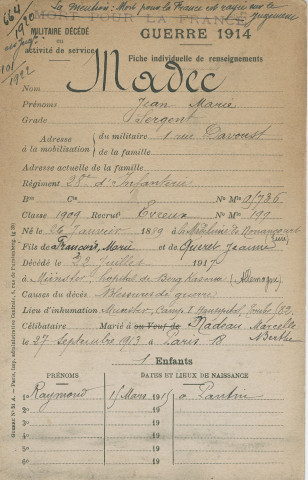 La mention: Mort pour la France est rayée sur le
jugement
664
1920
MORT POUR LA FRANCE
MILITAIRE DÉCÉDÉ
en
activité de service
GUERRE 1914
101
1922
Fiche individuelle de renseignements
Nom Madec
Prénoms Jean Marie
Grade Sergent
Adresse à la mobilisation du militaire 1 rue Davoust
de la famille
Adresse actuelle de la famille
Régiment 28e d'Infanterie
Bon Cie No Mle 9/736
Classe 1909 Recrut Evreux No Mle 199
Né le 26 Janvier 1889 à Nonancourt
(Eure)
Fils de François, Marie et de Queret Jeanne
Décédé le 22 Juillet 1917
à Münster, hopital de Berg Kaserne (Allemagne)
Causes du décès Blessures de guerre
Lieu d'inhumation Munster, Camp I Hauspital, Tombe 152
Célibataire Marié à ou Veuf de Nadeau Marcelle
Berthe
le 27 Septembre 1913 à Paris 18
1 Enfants
PRÉNOMS DATES ET LIEUX DE NAISSANCE
1o Raymond 15 Mars 1915 à Pantin
2o 19
3o 19
4o 19
5o 19
6o 19